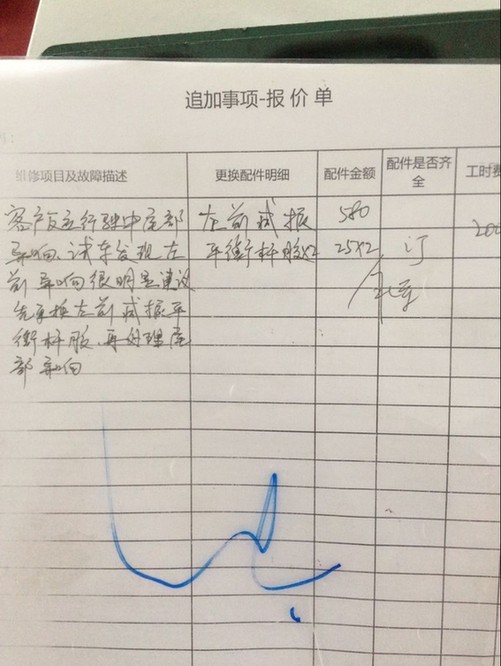 追加事项-报价单
维修项目及故障描述
更换配件明细
配件金额
配件是否齐全
工时费
客户反应行驶中底部
异响、试车发现左
前异响很明显建议
先更换左前减振平
衡杆胶、再处理底
部异响
左前减振
平衡杆胶x2
580
25x2
订
200